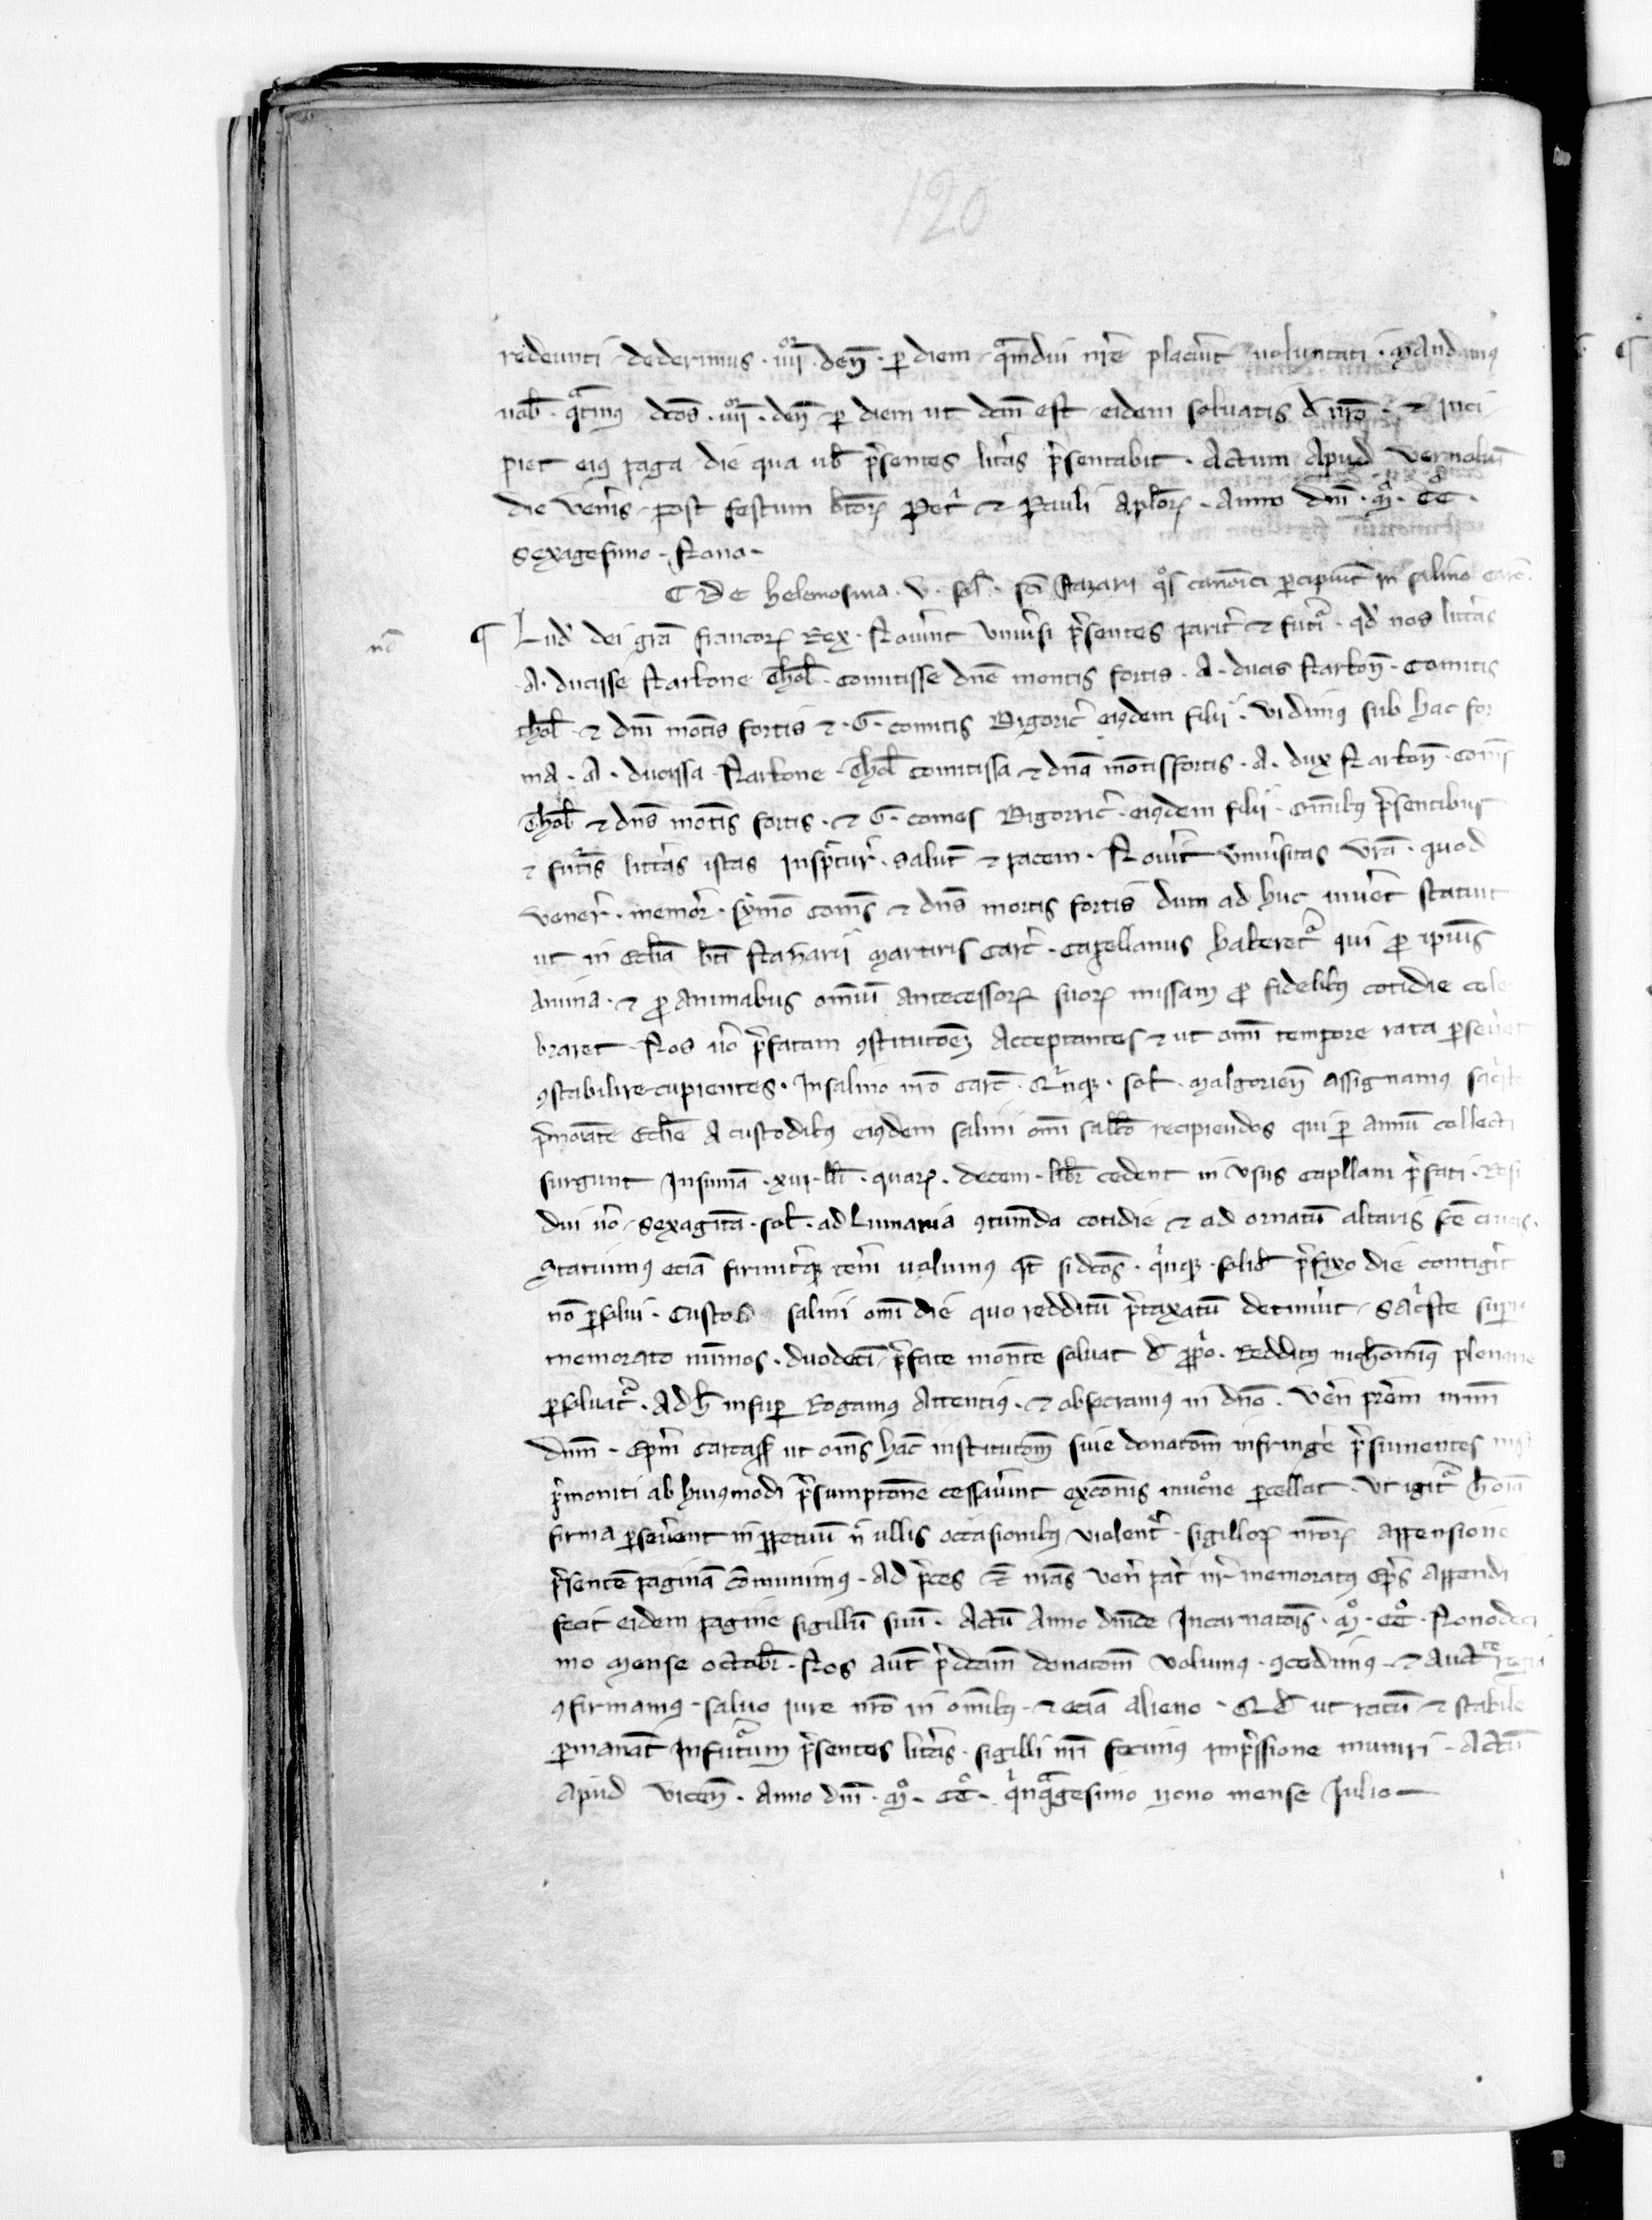 120
redeunti dederimus · iiijor · deñ · per diem quamdiu nr̃e placũit uoluntati · Mandamus
uob̃ · quatinus dc̃os · iiijor · deñ per diem ut dc̃m est eidem soluatis de nr̃o · et Inci
piet eius paga die qua ub̃ pr̃sentes litt̃as pr̃sentabit · Actum Apud vernoluñ
die veñis post festum bt̃orum Pet̃ et Pauli Apl̃orum · Anno dñi · Mº · CCº ·
sexagesimo · Nono ·
¶ De helemosina · v · sol̃ · sc̃i Nazarii quos canonici percipiunt in salino carc̃ ·
nõ ¶ Lud̃ dei gr̃a francorum Rex · Noũint vniũsi pr̃sentes pariter et futuri · qd̃ nos litt̃as
A · ducisse Narbone Thol̃ · comitisse dñe montis fortis · A · ducis Narboñ · Comitis
thol̃ · et dñi mont̃is fortis et · G · comitis Bigoric̃ eiusdem filii · vidimus sub hac for
ma · A · ducissa Narbone · Thol̃ comitissa et dñа mont̃isfortis · A · dux Narboñ · Com̃s
Thol̃ et dñs mont̃is fortis · et G · comes Bigorric̃ · eiusdem filii · om̃ibus pr̃sentibus
et fut̃is litt̃as istas inspectur̃ · Salut̃ et pacem · Nouerit vniũsitas vr̃a · quod
vener̃ · memor̃ · symõ Com̃s et dñs montis fortis dum ad huc uiũet statuit
ut in Eccl̃ia bt̃i Nazarii Martiris Carc̃ · Capellanus haberetur qui pro ipius
anima · et pro animabus om̃ium antecessorum suorum missam pro fidelibus cotidie cele
braret · Nos ũo pr̃fatam 9stitutõem Acceptantes et ut om̃i tempore rata perseũet
9stabilire cupientes · In salino nr̃o carc̃ · Quinque · sol̃ · malgorieñ assignamus sacriste
pr̃morate Eccl̃ie A custodibus eiusdem salini om̃i sabb̃o recipiendos qui per annũ collecti
surgunt In sum̃a · xiij · lib̃ · quarum · decem · lib̃r cedent in vsus capllani pr̃fati · Resi
dui ũo · sexagint̃a · sol̃ · ad Luminaria 9tinuanda cotidie et ad ornatũ altaris sc̃e crucis ·
Statuimus etiã firmiterque teñi uolumus qt̃ si dc̃os · quinque · solid̃ pr̃fixo die contigit̃
nõ persolui · Custos salini om̃i die quo redditũ pr̃taxatũ detinũit · Sacriste superi
memorato num̃os · duodecĩ · pr̃fate monete soluat de pp̃o · Redditus nichomin9 plenarie
persoluatur · Ad h̃ insuper Rogamus Attentius · et obsecramus in dño · veñ prẽm nr̃m
dñm · Ep̃m carcass̃ ut om̃s hãc institutiõem siue donatõem infringere pr̃sumentes nisi
pr̃moniti ab huiusmodi pr̃sumptiõne cessaũint exc̃omis mucrone percellat · Vt igitur h̃ om̃ia
firma perseũent in perpetuũ ñ ullis occasionibus violentur · sigillorum nr̃orum appensione
pr̃sentẽ paginã com̃unimus · Ad pr̃ces et̃ nr̃as veñ pat̃ nr̃ memoratus Ep̃s appendi
fecit eidem pagine sigillũ suũ · Actũ Anno dñice Incarnatiõis · Mº · CCº · Nonodeci
mo Mense octobr̃ · Nos aut̃ pr̃dc̃am donatõem volumus · 9cedimus · et auctte regia
9firmamus · saluo iure nr̃o in om̃ibus · et etiã alieno · Qd̃ ut ratũ et stabile
permaneat In futurum pr̃sentes litt̃as · sigilli nr̃i fecimus impr̃ssione muniri · Actũ
apud viceñ · Anno dñi · Mº · CCº · quinquagesimo nono mense Iulio